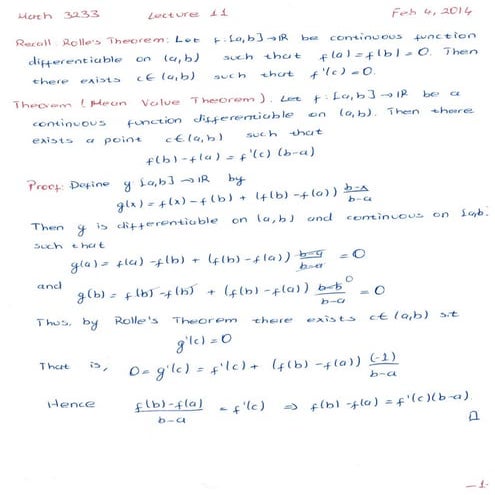 Math 3233 Lecture 11 Feb 4, 2014
Recall: Rolle's Theorem: Let f:[a,b]→ℝ be continuous function
differentiable on (a,b) such that f(a)=f(b)=0. Then
there exists c∈(a,b) such that f'(c)=0.
Theorem (Mean Value Theorem). Let f:[a,b]→ℝ be a
continuous function differentiable on (a,b). Then there
exists a point c∈(a,b) such that
f(b)-f(a)=f'(c)(b-a)
Proof: Define g [a,b]→ℝ by
g(x)=f(x)-f(b)+(f(b)-f(a)) (b-x)/(b-a)
Then g is differentiable on (a,b) and continuous on [a,b].
such that
g(a)=f(a)-f(b)+(f(b)-f(a)) (b-a)/(b-a) =0
and
g(b)=f(b)-f(b)+(f(b)-f(a)) (b-b)/(b-a) 0 =0
Thus, by Rolle's Theorem there exists c∈(a,b) s.t
g'(c)=0
That is, 0=g'(c)=f'(c)+(f(b)-f(a)) (-1)/(b-a)
Hence (f(b)-f(a))/(b-a) =f'(c) ⇒ f(b)-f(a)=f'(c)(b-a).
□
-1-